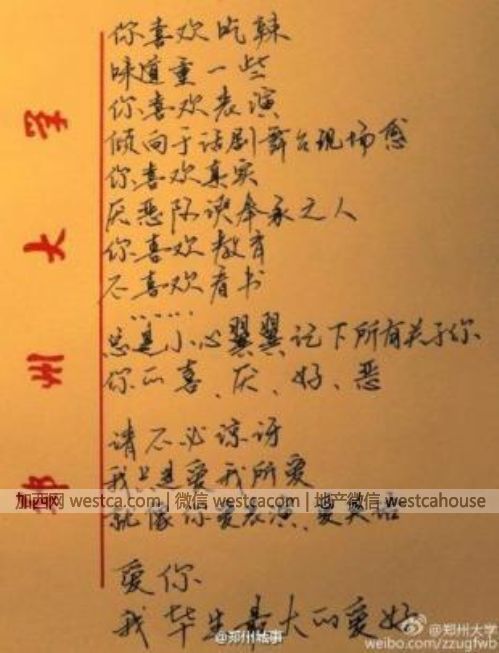 郑州大学
你喜欢吃辣
味道重一些
你喜欢表演
倾向于话剧舞台现场感
你喜欢真实
厌恶阿谀奉承之人
你喜欢教育
不喜欢看书
……
总是小心翼翼记下所有关于你
你的喜、厌、好、恶
请不必惊讶
我只是爱我所爱
就像你爱表演、爱笑话
爱你
我毕生最大的爱好
加西网 westca.com | 微信 westcacom | 地产微信 westcahouse
@郑州城事
@郑州大学
weibo.com/zzugfwb